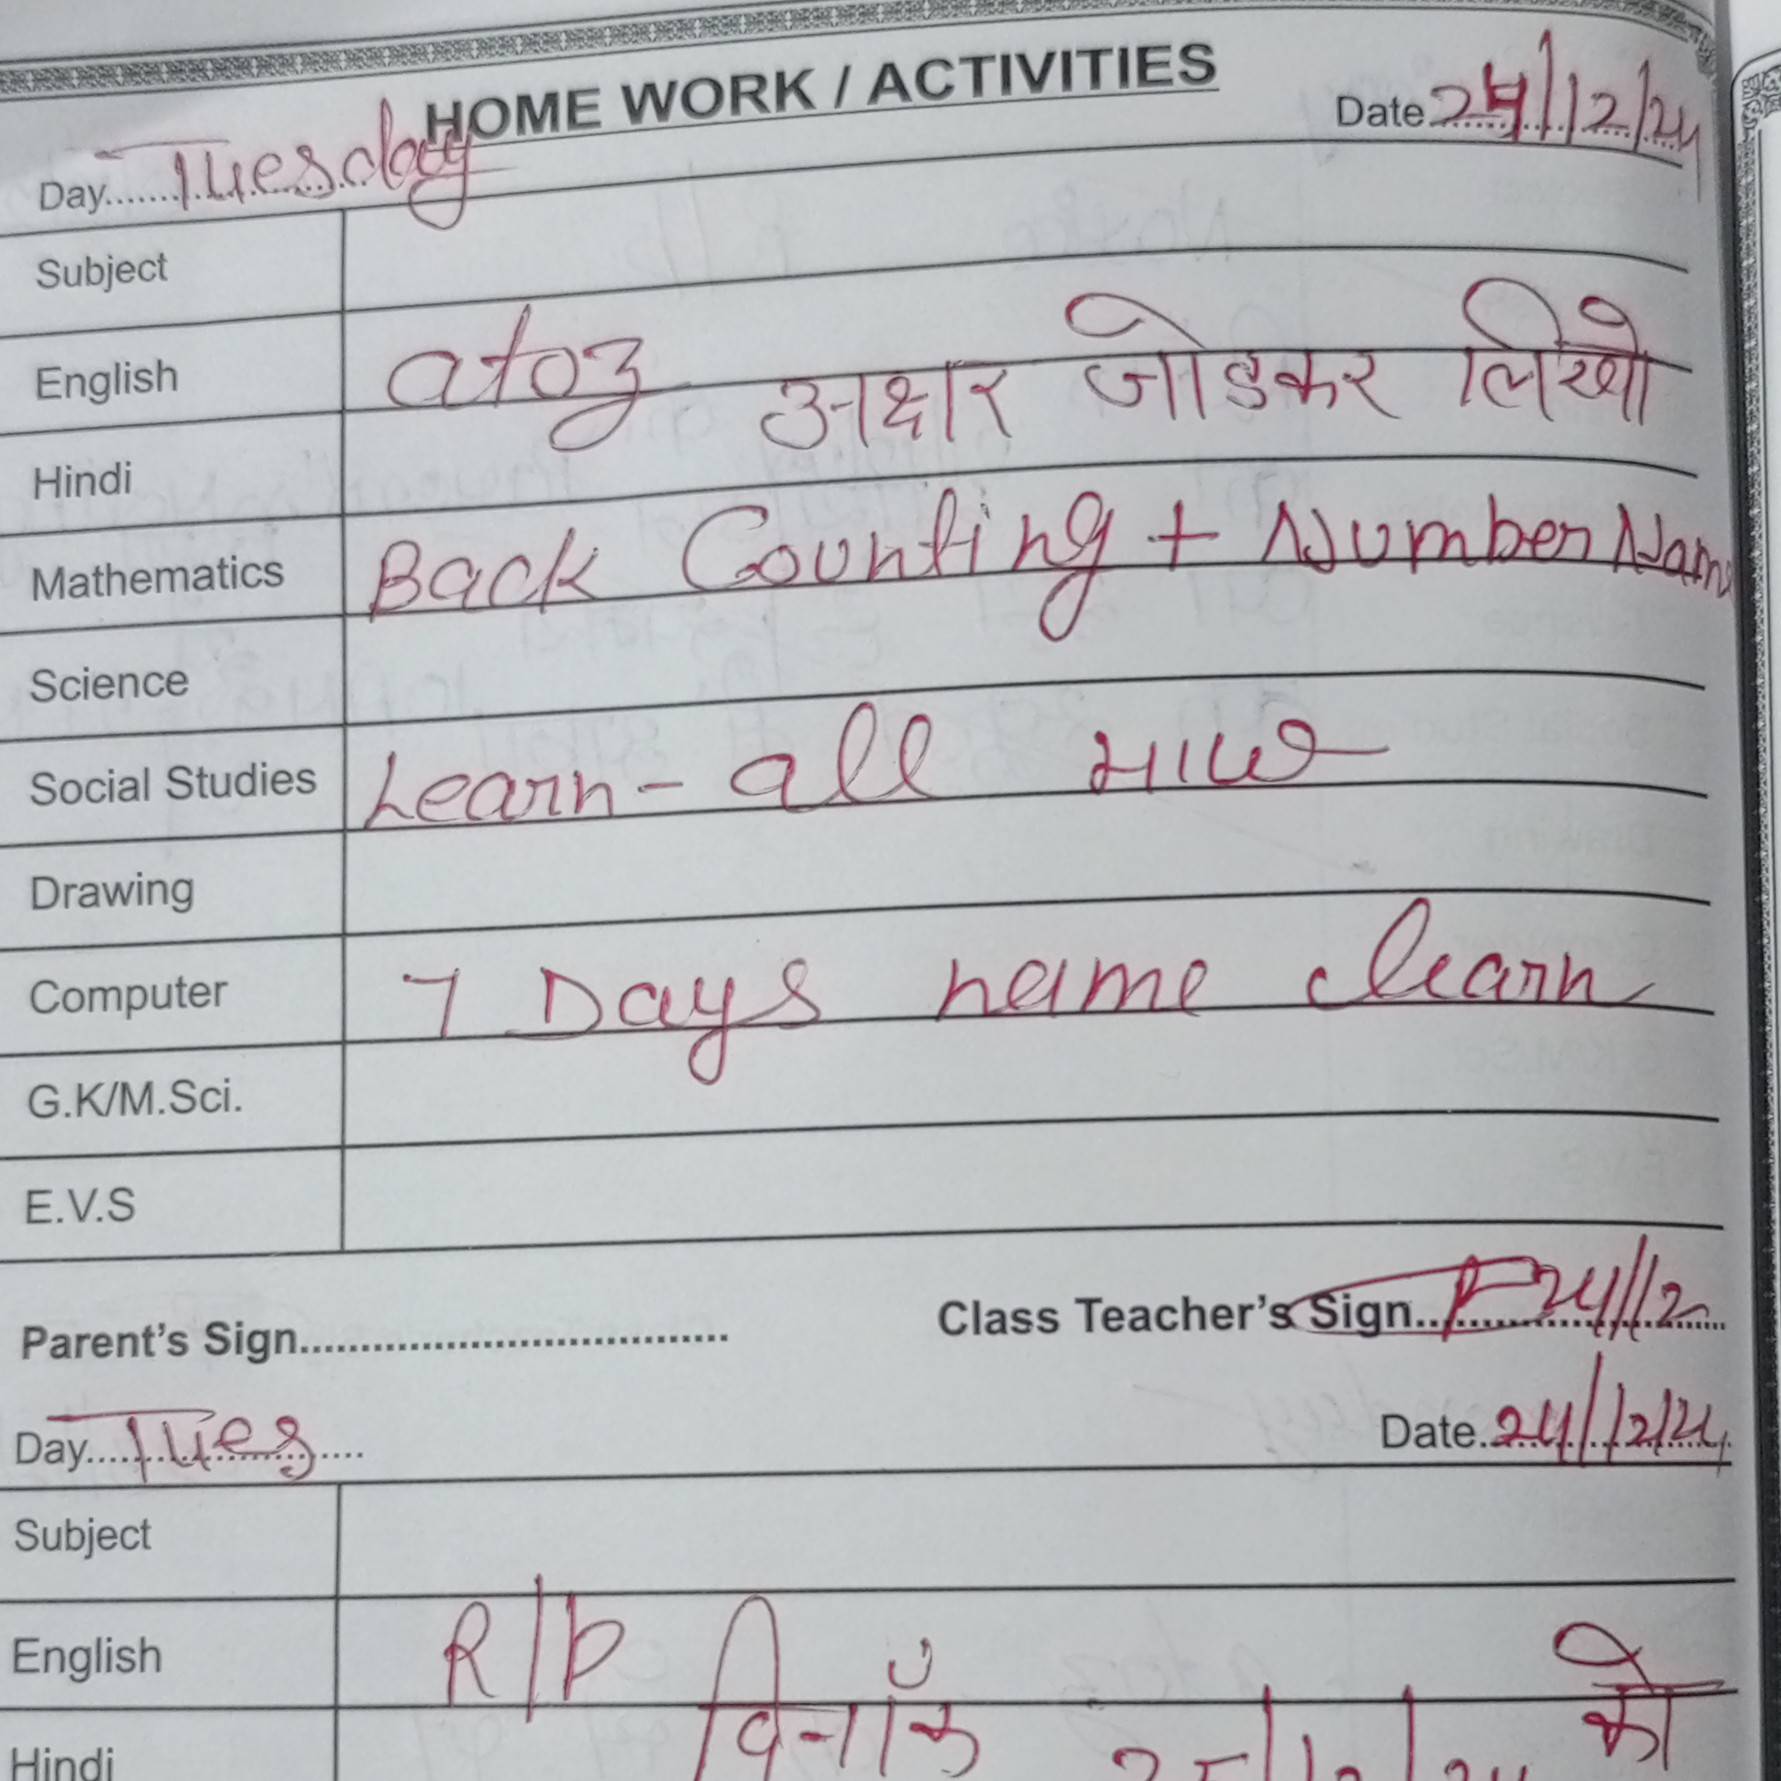 HOME WORK / ACTIVITIES
Day Tuesday Date 24/12/24
Subject
English a to z
Hindi अक्षर जोडकर लिखो
Mathematics Back Counting + Number Name
Science
Social Studies Learn - all
Drawing
Computer 7 Days name learn
G.K/M.Sci.
E.V.S
Parent's Sign Class Teacher's Sign 24/12
Day Tues Date 24/12/24
Subject
English R/P
Hindi दिनाँक 25/12/24 को